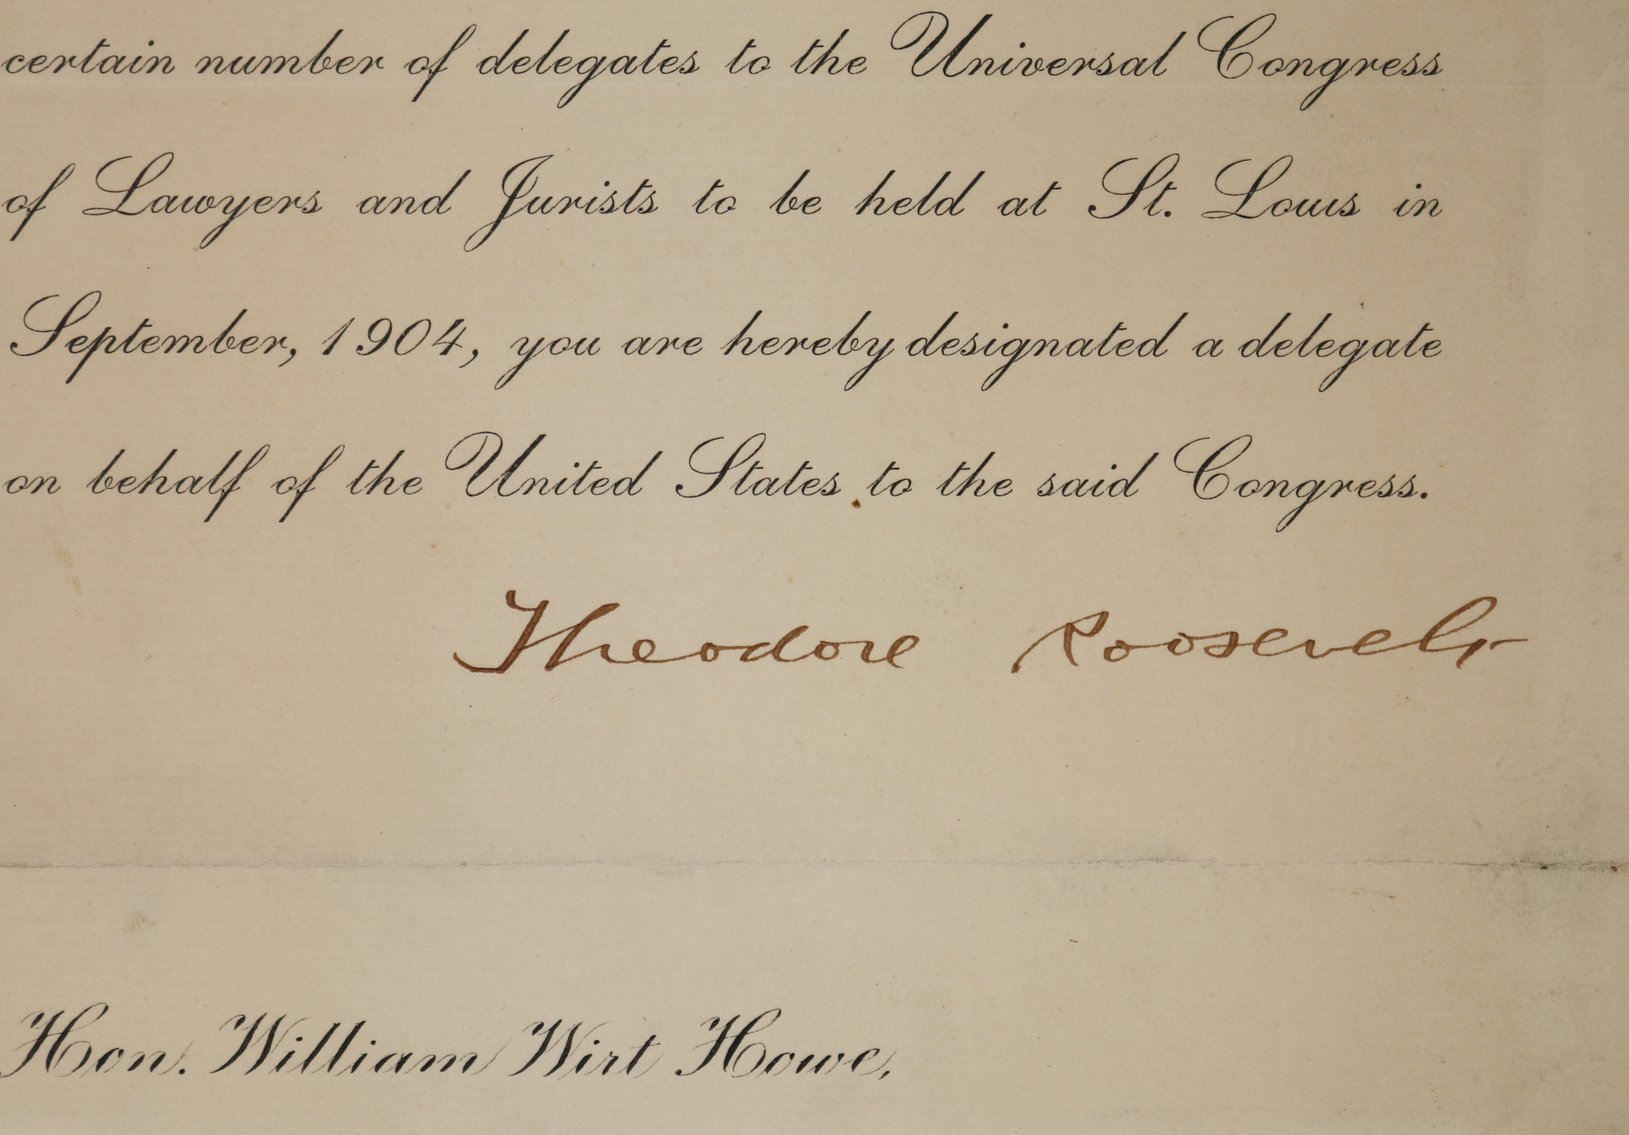 certain number of delegates to the Universal Congress
of Lawyers and Jurists to be held at St. Louis in
September, 1904, you are hereby designated a delegate
on behalf of the United States to the said Congress.
Theodore Roosevelt
Hon. William Wirt Howe,